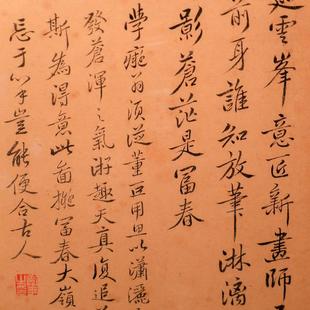 雲峯意匠新畫師
前身誰知放筆淋漓
影蒼茫是富春
學癡翁須從董巨用思以瀟灑
發蒼渾之氣游趣天真復追
斯為得意此圖擬富春大嶺
忘于心手豈能便合古人